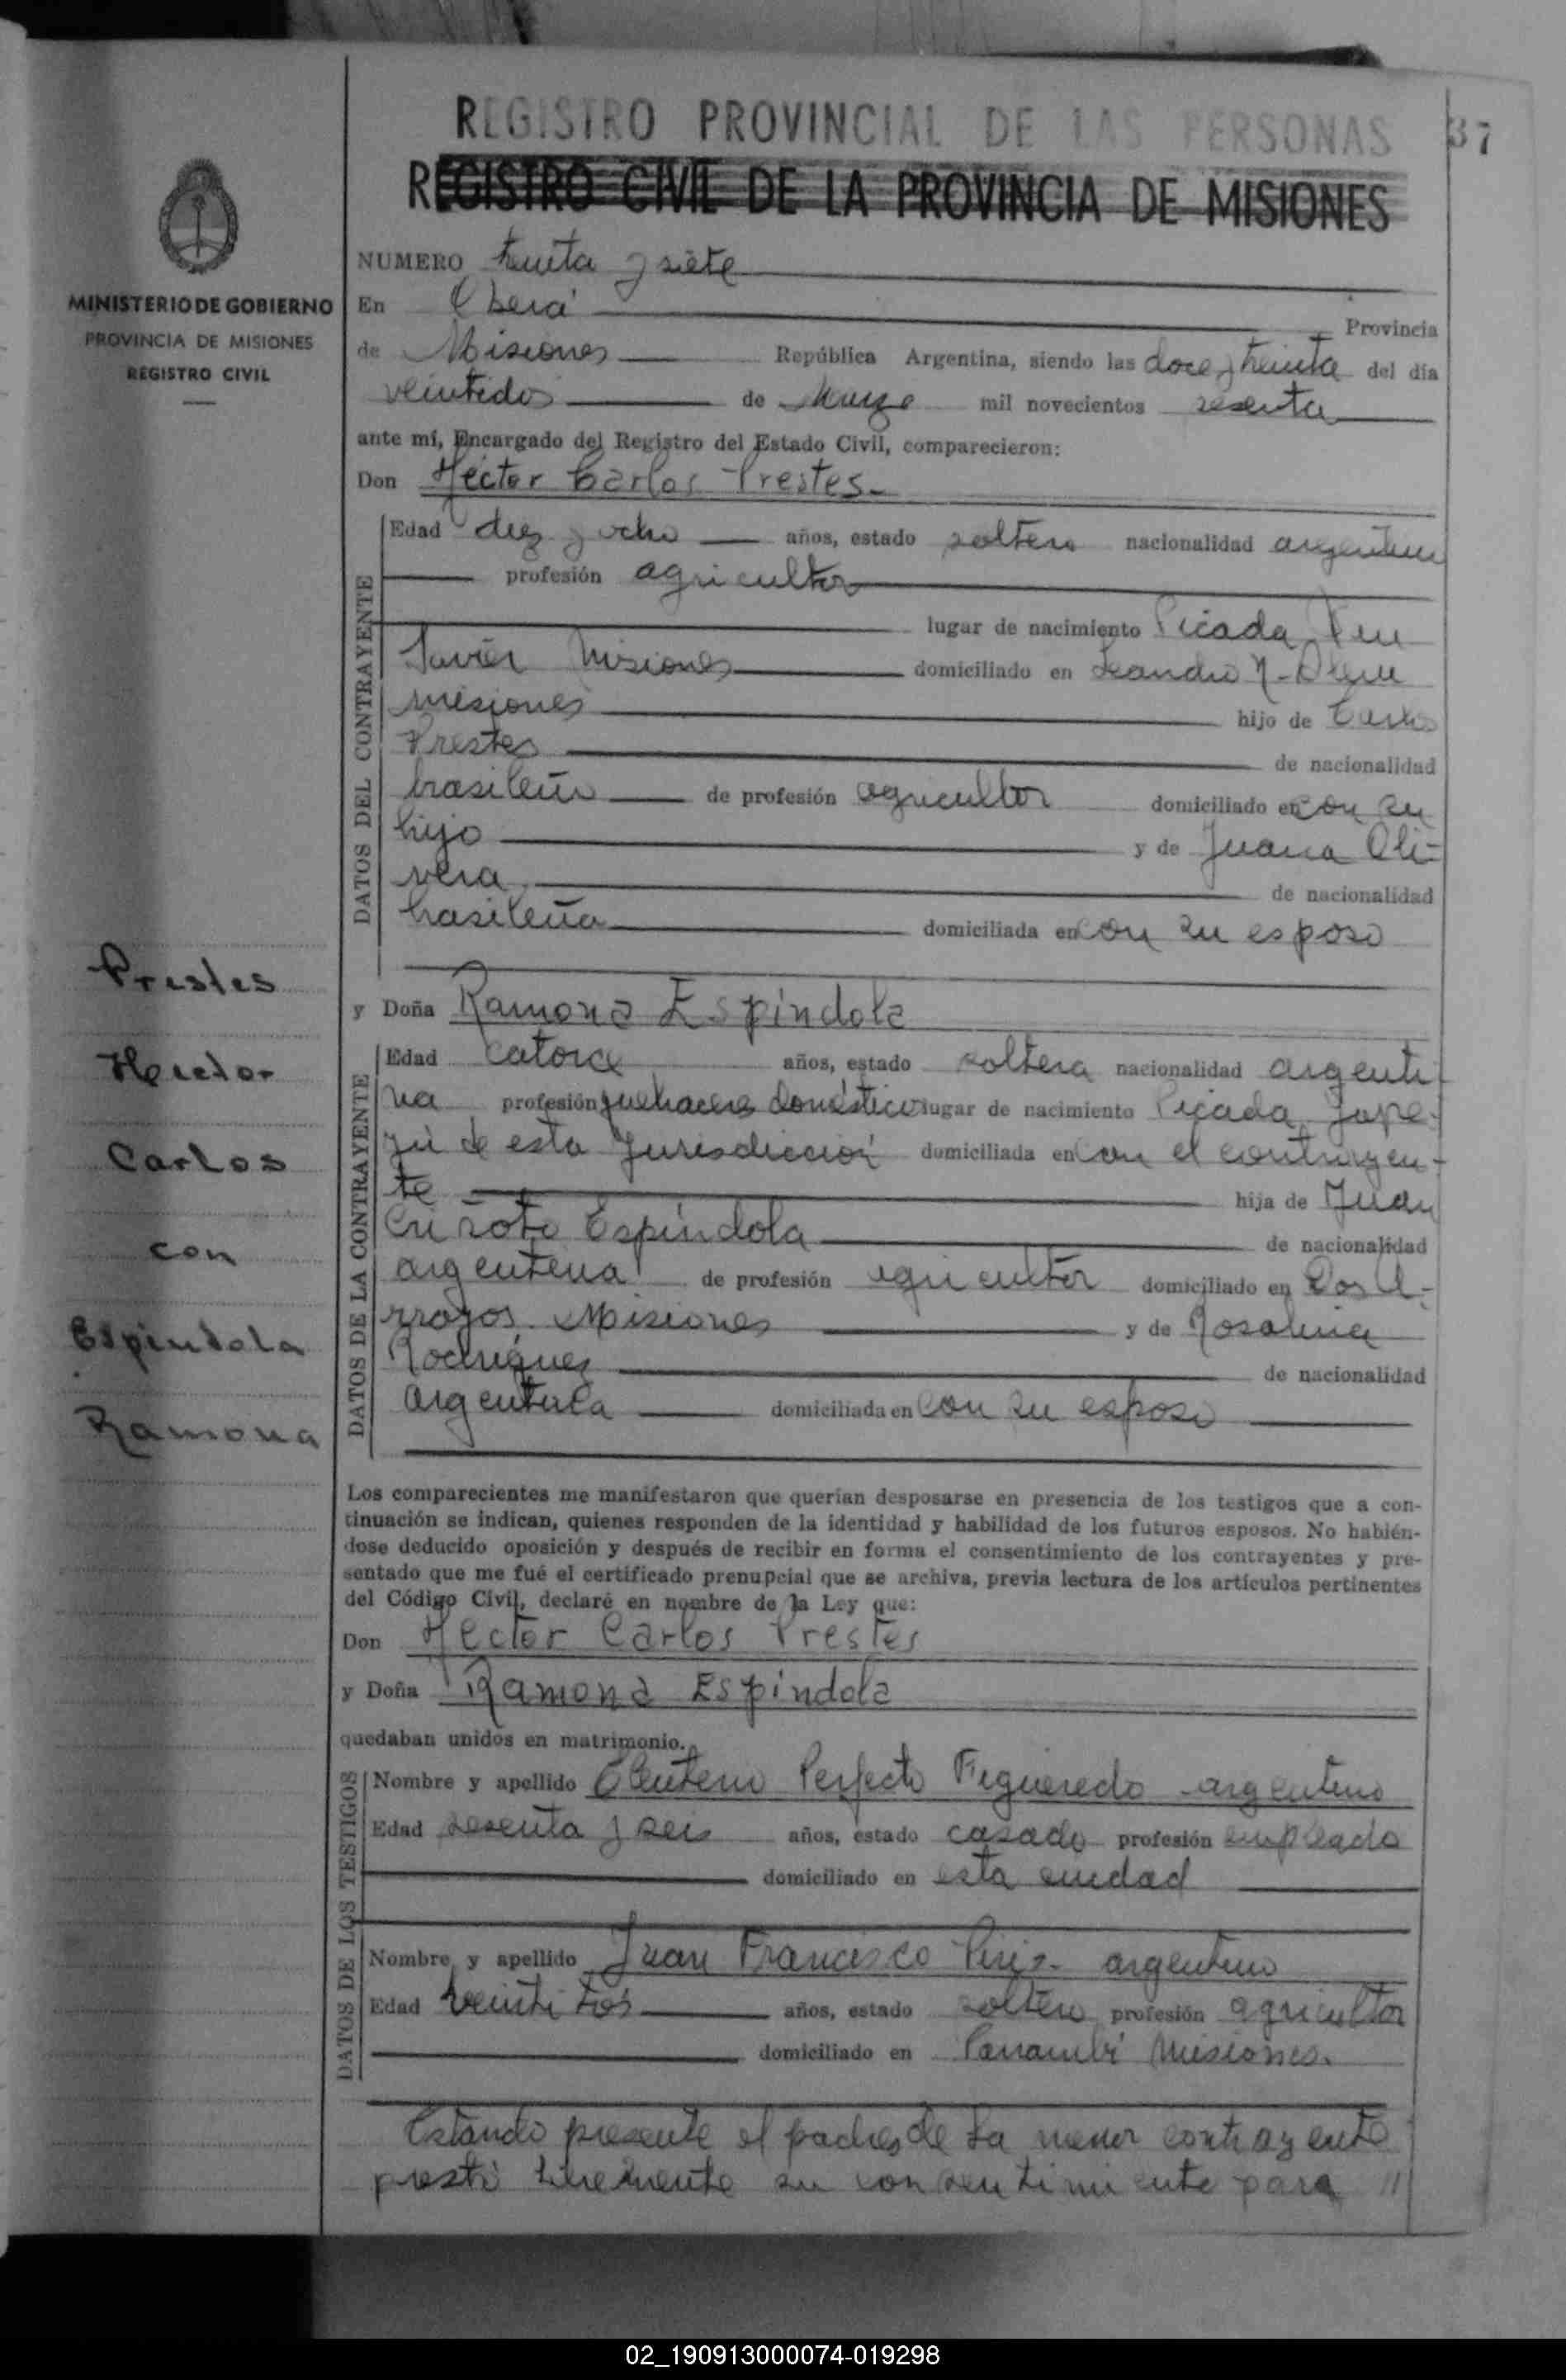 REGISTRO PROVINCIAL DE LAS PERSONAS
37
REGISTRO CIVIL DE LA PROVINCIA DE MISIONES
MINISTERIO DE GOBIERNO
PROVINCIA DE MISIONES
REGISTRO CIVIL
NUMERO treinta y siete
En Oberá Provincia
de Misiones República Argentina, siendo las doce y treinta del día
veintidos de Marzo mil novecientos sesenta
ante mí, Encargado del Registro del Estado Civil, comparecieron:
Don Héctor Carlos Prestes.
DATOS DEL CONTRAYENTE
Edad diez y ocho años, estado soltero nacionalidad argentino
profesión agricultor
lugar de nacimiento Picada
Javier Misiones domiciliado en Leandro N. Alem
misiones hijo de Carlos
Prestes de nacionalidad
brasileño de profesión agricultor domiciliado en con su
hijo y de Juana Oli-
vera de nacionalidad
brasileña domiciliada en con su esposo
Prestes
Hector
Carlos
con
Espindola
Ramona
y Doña Ramona Espíndola
DATOS DE LA CONTRAYENTE
Edad catorce años, estado soltera nacionalidad argenti
na profesión quehaceres domésticos lugar de nacimiento Picada Yape-
yú de esta Jurisdicción domiciliada en con el contrayen-
te hija de Juan
Espíndola de nacionalidad
argentina de profesión agricultor domiciliado en Dos A-
rroyos. Misiones y de Rosalina
Rodríguez de nacionalidad
argentina domiciliada en con su esposo
Los comparecientes me manifestaron que querían desposarse en presencia de los testigos que a con-
tinuación se indican, quienes responden de la identidad y habilidad de los futuros esposos. No habién-
dose deducido oposición y después de recibir en forma el consentimiento de los contrayentes y pre-
sentado que me fué el certificado prenupcial que se archiva, previa lectura de los artículos pertinentes
del Código Civil, declaré en nombre de la Ley que:
Don Hector Carlos Prestes
y Doña Ramona Espíndola
quedaban unidos en matrimonio.
DATOS DE LOS TESTIGOS
Nombre y apellido Eleuterio Perfecto Figueredo argentino
Edad sesenta y seis años, estado casado profesión empleado
domiciliado en esta ciudad
Nombre y apellido Juan Francisco Piris. argentino
Edad años, estado soltero profesión agricultor
domiciliado en Panambí Misiones.
Estando presente el padre de la menor contrayente
prestó libremente su consentimiento para //
02_190913000074-019298